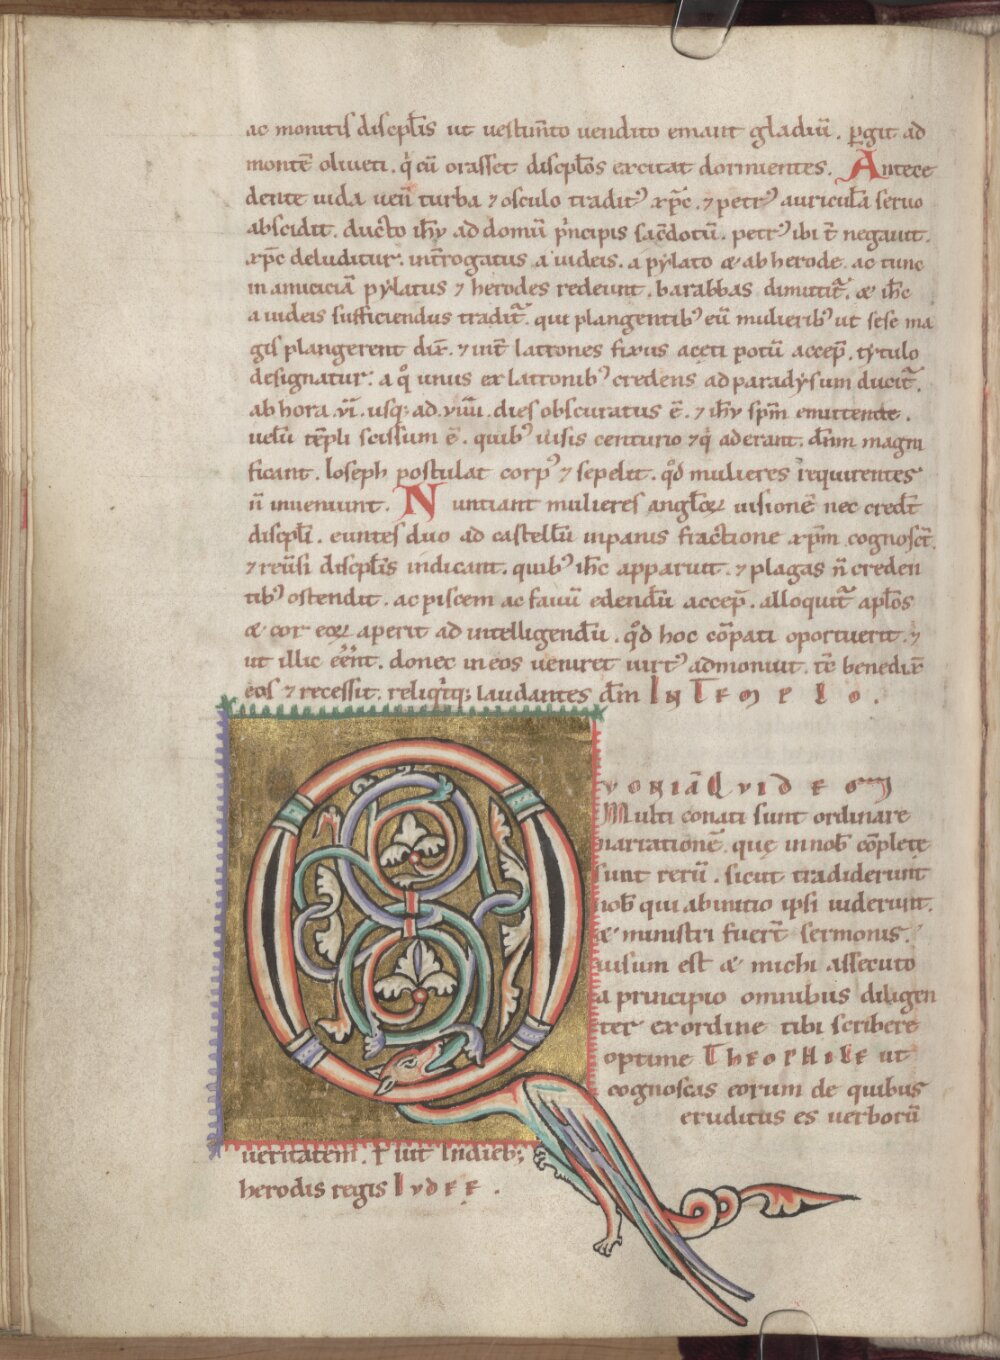 ac monitis discpl̄is ut uestim̄to uendito emant gladiū . p̱git ad
montē oliueti . q̇ cū orasset discpl̄os excitat dormientes . Antece
dente iuda uen̄ turba ⁊ osculo traditꝰ xp̄c . ⁊ petrꝰ auriculā seruo
abscidit . ducto ih̄u ad domū p̓ncipis sac̄dotū . petrꝰ ibi t̄ negauit .
xp̄c deluditur . int̄rogatus a iudeis . a pẏlato & ab herode . ac tunc
in amiciciā pẏlatus ⁊ herodes redeunt . barabbas dimittit᷑ . & ih̄c
a iudeis sufficiendus tradit᷑ . qui plangentibꝰ eū mulieribꝰ ut sese ma
gis plangerent dix̄ . ⁊ int̄ latrones fixus aceti potū accep̄ . tẏtulo
designatur . a q̊ unus ex latronibꝰ credens ad paradẏsum ducit᷑ .
ab hora .vi. usq; ad .viiii. dies obscuratus ē . ⁊ ih̄u sp̄m emittente .
uelū tēpli scissum ē . quibꝰ uisis centurio ⁊ q̇ aderant . dn̄m magni
ficant . Ioseph postulat corpꝰ ⁊ sepelit . qd̄ mulieres requirentes
n̄ inueniunt . Nuntiant mulieres angl̄oꝝ uisionē nec credt̄
discpl̄i . euntes duo ad castellū in panis fractione xp̄m cognosct̄ .
⁊ reūsi discpl̄is indicant . quibꝰ ih̄c apparuit . ⁊ plagas n̄ creden
tibꝰ ostendit . ac piscem ac fauū edendū accep̄ . alloquit᷑ apl̄os
& cor eoꝝ aperit ad intelligendū . qd̄ hoc cōpati oportuerit . ⁊
ut illic eēnt . donec in eos ueniret uirtꝰ admoniut . tc̄ benedix̄
eos ⁊ recessit . reliq̇tq; laudantes dm̄ IN TEMPLO .
QVONIĀ QVIDEM
Multi conati sunt ordinare
narrationē . quę in nob̄ cōplete
sunt rerū . sicut tradiderunt
nob̄ qui ab initio ipsi uiderunt .
& ministri fuert̄ sermonis .
uisum est & michi assecuto
a principio omnibus diligen
ter ex ordine tibi scribere
optime THEOPHILE ut
cognoscas eorum de quibus
eruditus es uerborū
ueritatem . Fuit In dieb;
herodis regis IVDEE .